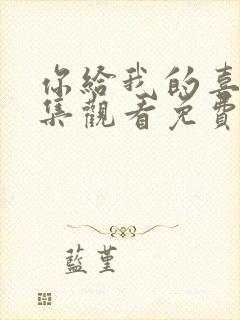 你給我的喜
集觀看免費
藍堇